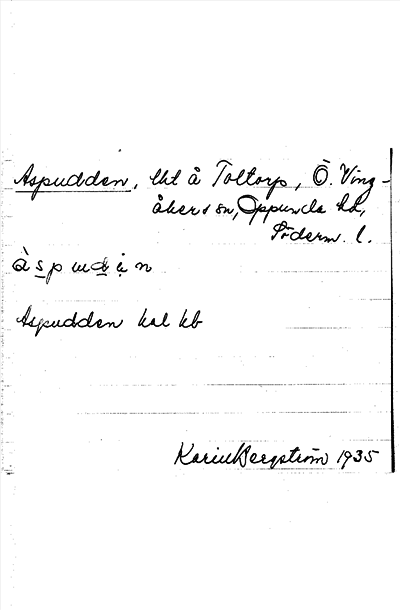 Aspudden, lht å Toltorp, Ö. Ving-
åkers sn, Oppunda hd,
Söderm. l.
à s p u d ə n
Aspudden hal kb
Karin Bergström 1935